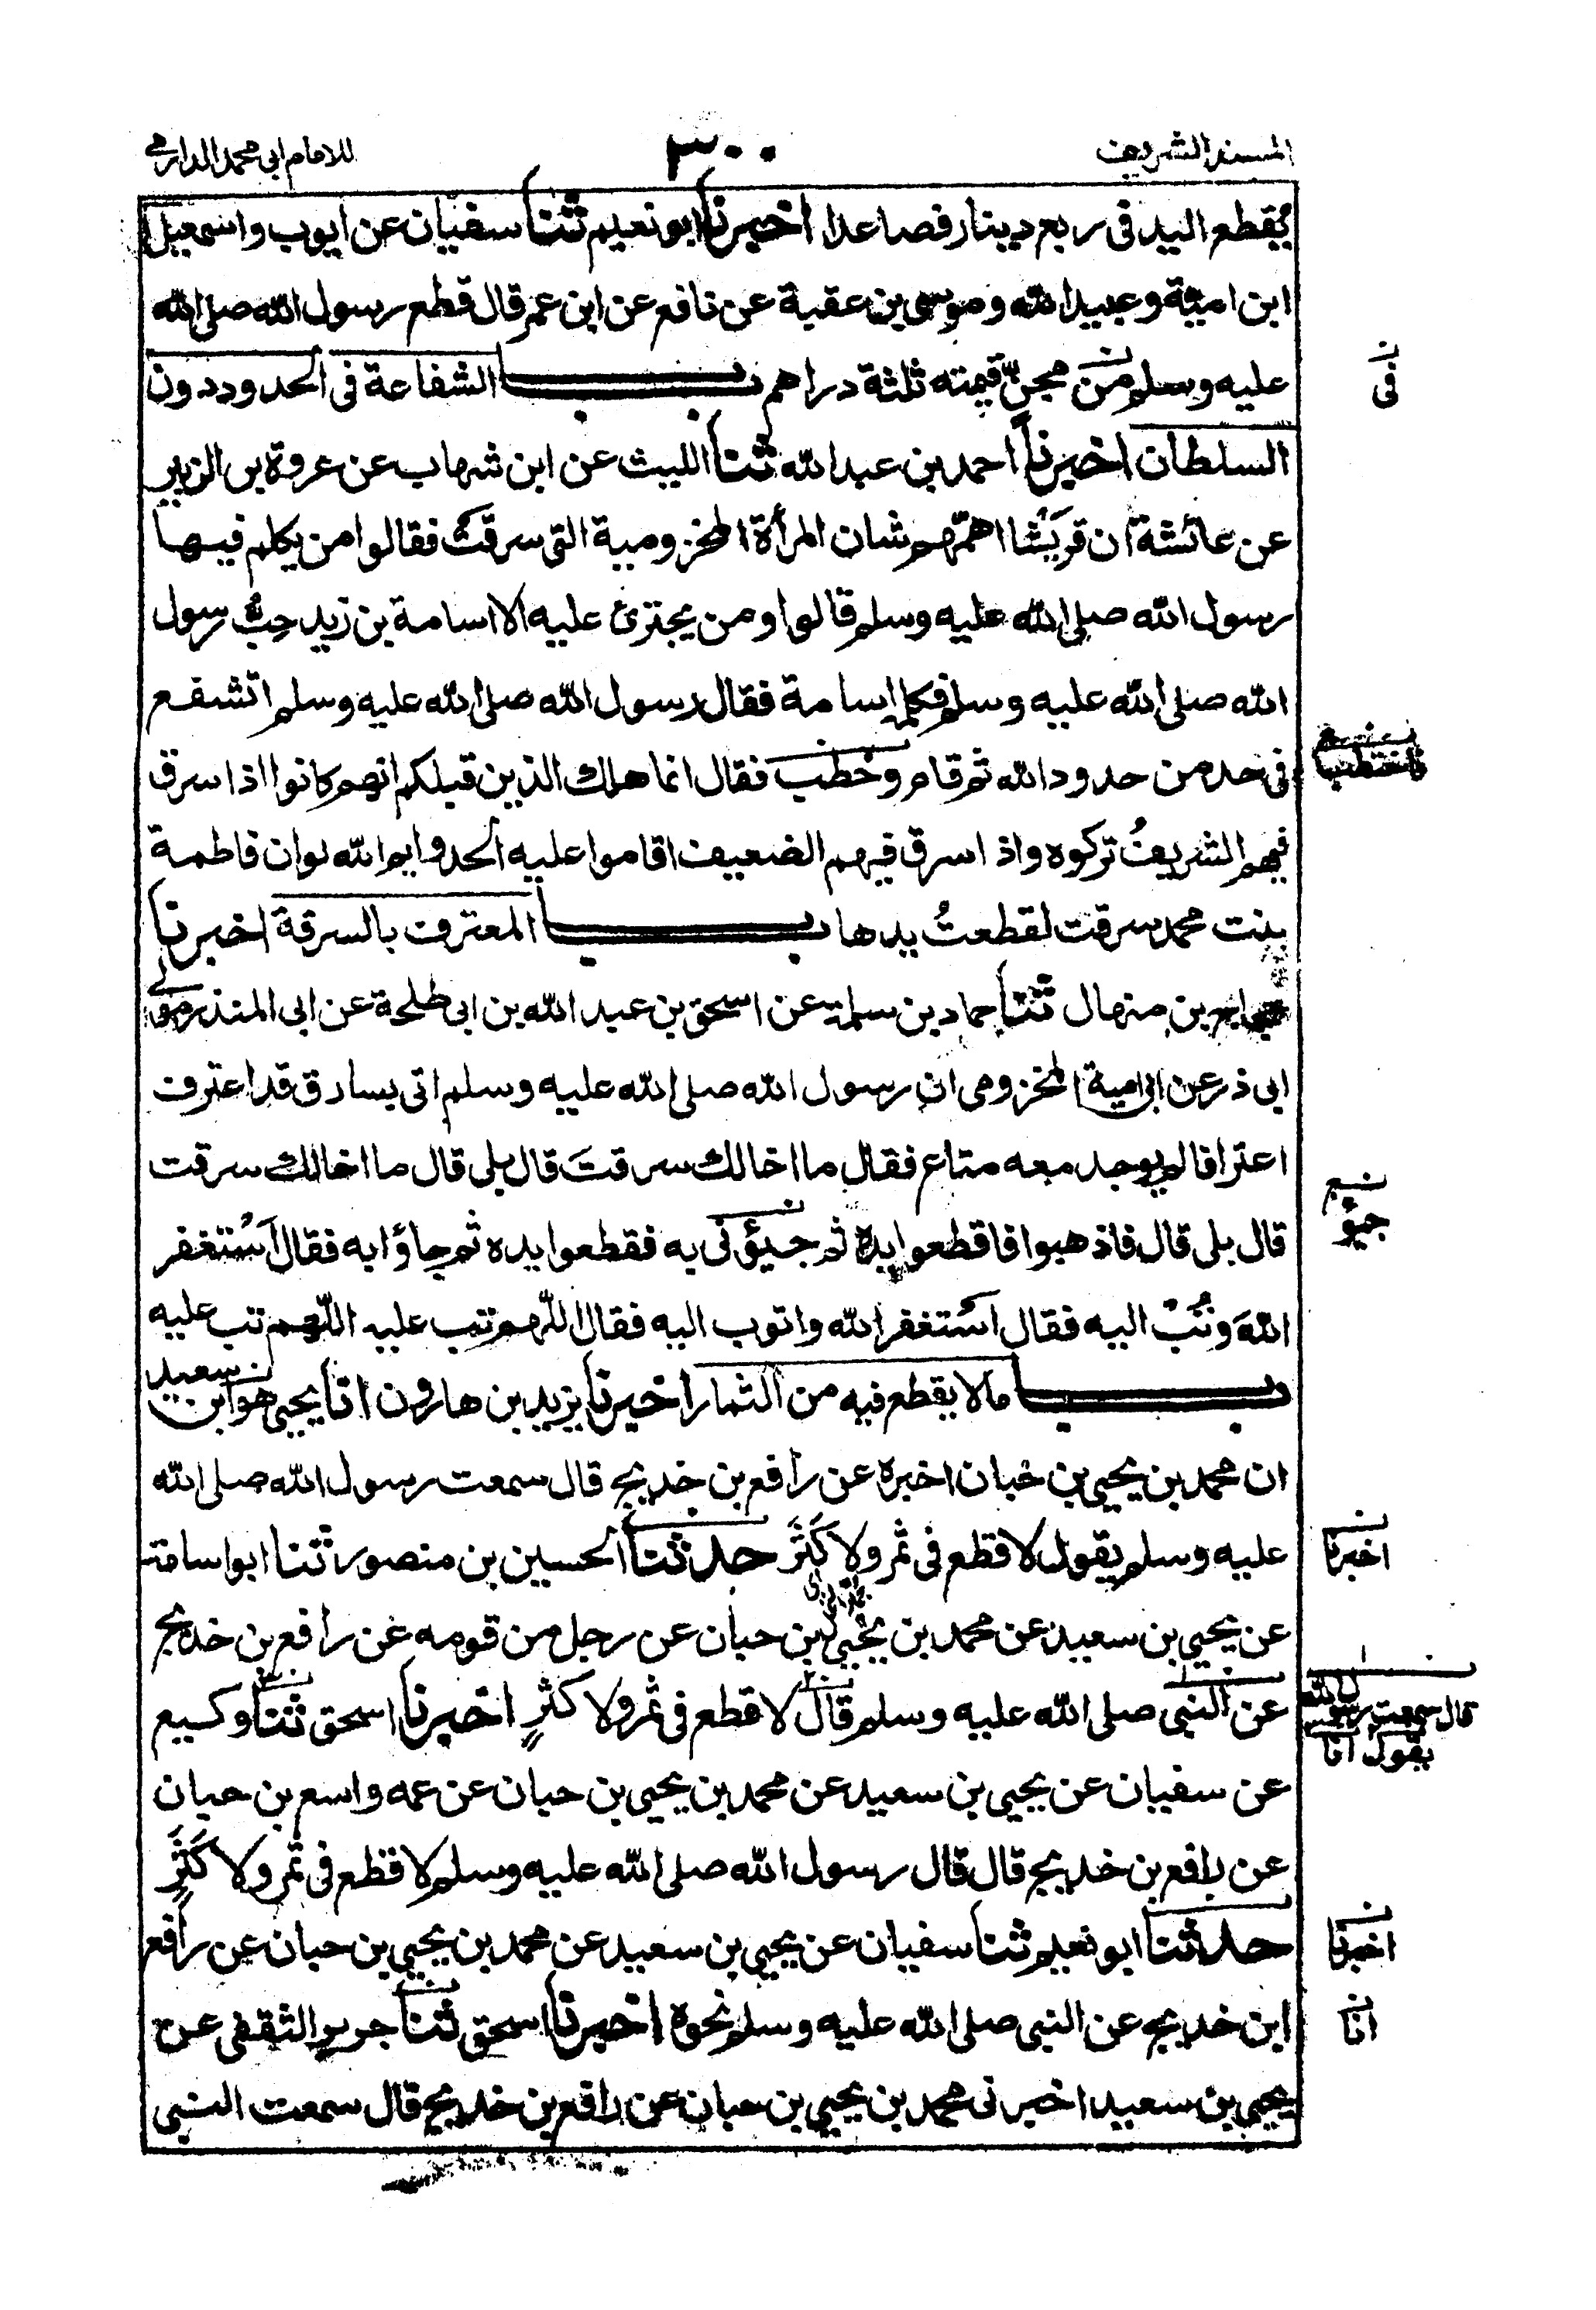 المسند الشريف
٣٠٠
للامام ابى محمد الدارمى
يقطع اليد فى ربع دينار فصاعدا اخبرنا ابو نعيم ثنا سفيان عن ايوب واسمعيل
ابن امية وعبيد الله وموسى بن عقبة عن نافع عن ابن عمر قال قطع رسول الله صلى الله
عليه وسلم من مجن قيمته ثلثة دراهم باب الشفاعة فى الحدود دون
فى
السلطان اخبرنا احمد بن عبد الله ثنا الليث عن ابن شهاب عن عروة بن الزبير
عن عائشة ان قريشا اهمهم شان المرأة المخزومية التى سرقت فقالوا من يكلم فيها
رسول الله صلى الله عليه وسلم قالوا ومن يجترئ عليه الا اسامة بن زيد حِبُّ رسول
الله صلى الله عليه وسلم فكلمه اسامة فقال رسول الله صلى الله عليه وسلم اتشفع
فى حد من حدود الله ثم قام وخطب فقال انما هلك الذين قبلكم انهم كانوا اذا سرق
فاختطب
فيهم الشريفُ تركوه واذا سرق فيهم الضعيف اقاموا عليه الحد وايم الله لو ان فاطمة
بنت محمد سرقت لقطعتُ يدها باب المعترف بالسرقة اخبرنا
حجاج بن منهال ثنا حماد بن سلمة عن اسحق بن عبد الله بن ابى طلحة عن ابى المنذر مولى
ابى ذر عن ابى امية المخزومى ان رسول الله صلى الله عليه وسلم اتى بسارق قد اعترف
اعترافا لم يوجد معه متاع فقال ما اخالك سرقتَ قال بلى قال ما اخالك سرقت
قال بلى قال فاذهبوا فاقطعوا يده ثم جيؤنى به فقطعوا يده ثم جاؤا به فقال اَسْتغفر
جيؤ
اللهَ وتُبْ اليه فقال اَسْتغفر الله واتوب اليه فقال اللّهم تب عليه اللّهم تب عليه
باب ما لا يقطع فيه من الثمار اخبرنا يزيد بن هارون انا يحيى هو ابن سعيد
ان محمد بن يحيى بن حبان اخبره عن رافع بن خديج قال سمعت رسول الله صلى الله
عليه وسلم يقول لا قطع فى ثمر ولا كَثَرَ حدثنا الحسين بن منصور ثنا ابو اسامة
اخبرنا
عن يحيى بن سعيد عن محمد بن يحيى بن حبان عن رجل من قومه عن رافع بن خديج
عن النبى صلى الله عليه وسلم قال لا قطع فى ثمر ولا كثرٍ اخبرنا اسحق ثنا وكيع
قال سمعت رسول الله
يقول انا
عن سفيان عن يحيى بن سعيد عن محمد بن يحيى بن حبان عن عمه واسع بن حبان
عن رافع بن خديج قال قال رسول الله صلى الله عليه وسلم لا قطع فى ثمر ولا كَثَرٍ
حدثنا ابو نعيم ثنا سفيان عن يحيى بن سعيد عن محمد بن يحيى بن حبان عن رافع
اخبرنا
ابن خديج عن النبى صلى الله عليه وسلم نحوه اخبرنا اسحق ثنا جرير والثقفى عن
انا
يحيى بن سعيد اخبرنى محمد بن يحيى بن حبان عن رافع بن خديج قال سمعت النبى